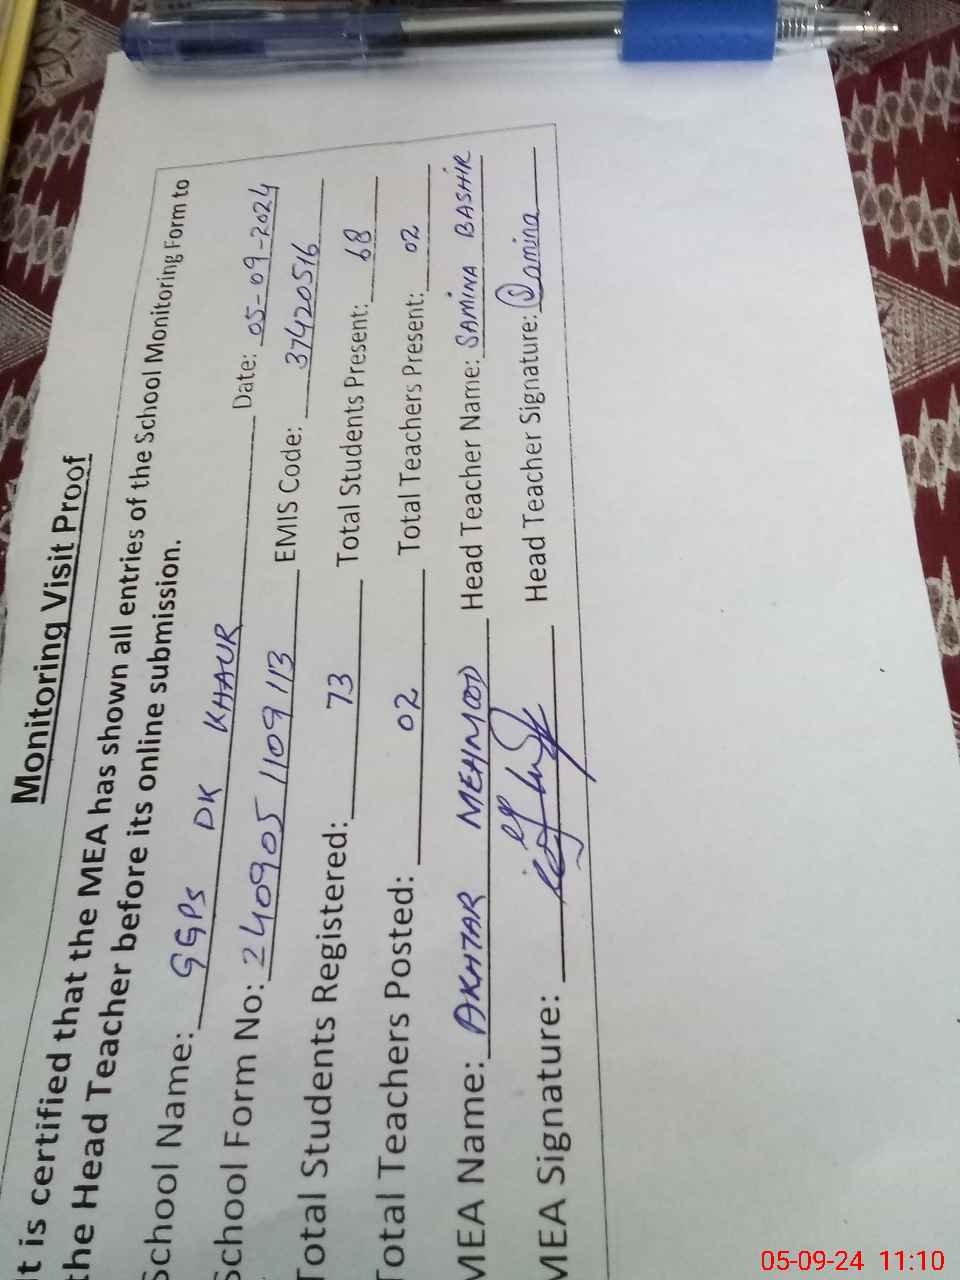 Monitoring Visit Proof
It is certified that the MEA has shown all entries of the School Monitoring Form to
the Head Teacher before its online submission.
School Name: GGPS DK KHAUR Date: 05-09-2024
School Form No: 240905 1109 113 EMIS Code: 37420516
Total Students Registered: 73 Total Students Present: 68
Total Teachers Posted: 02 Total Teachers Present: 02
MEA Name: AKHTAR MEHMOOD Head Teacher Name: SAMINA BASHIR
MEA Signature: Head Teacher Signature: Samina
05-09-24 11:10